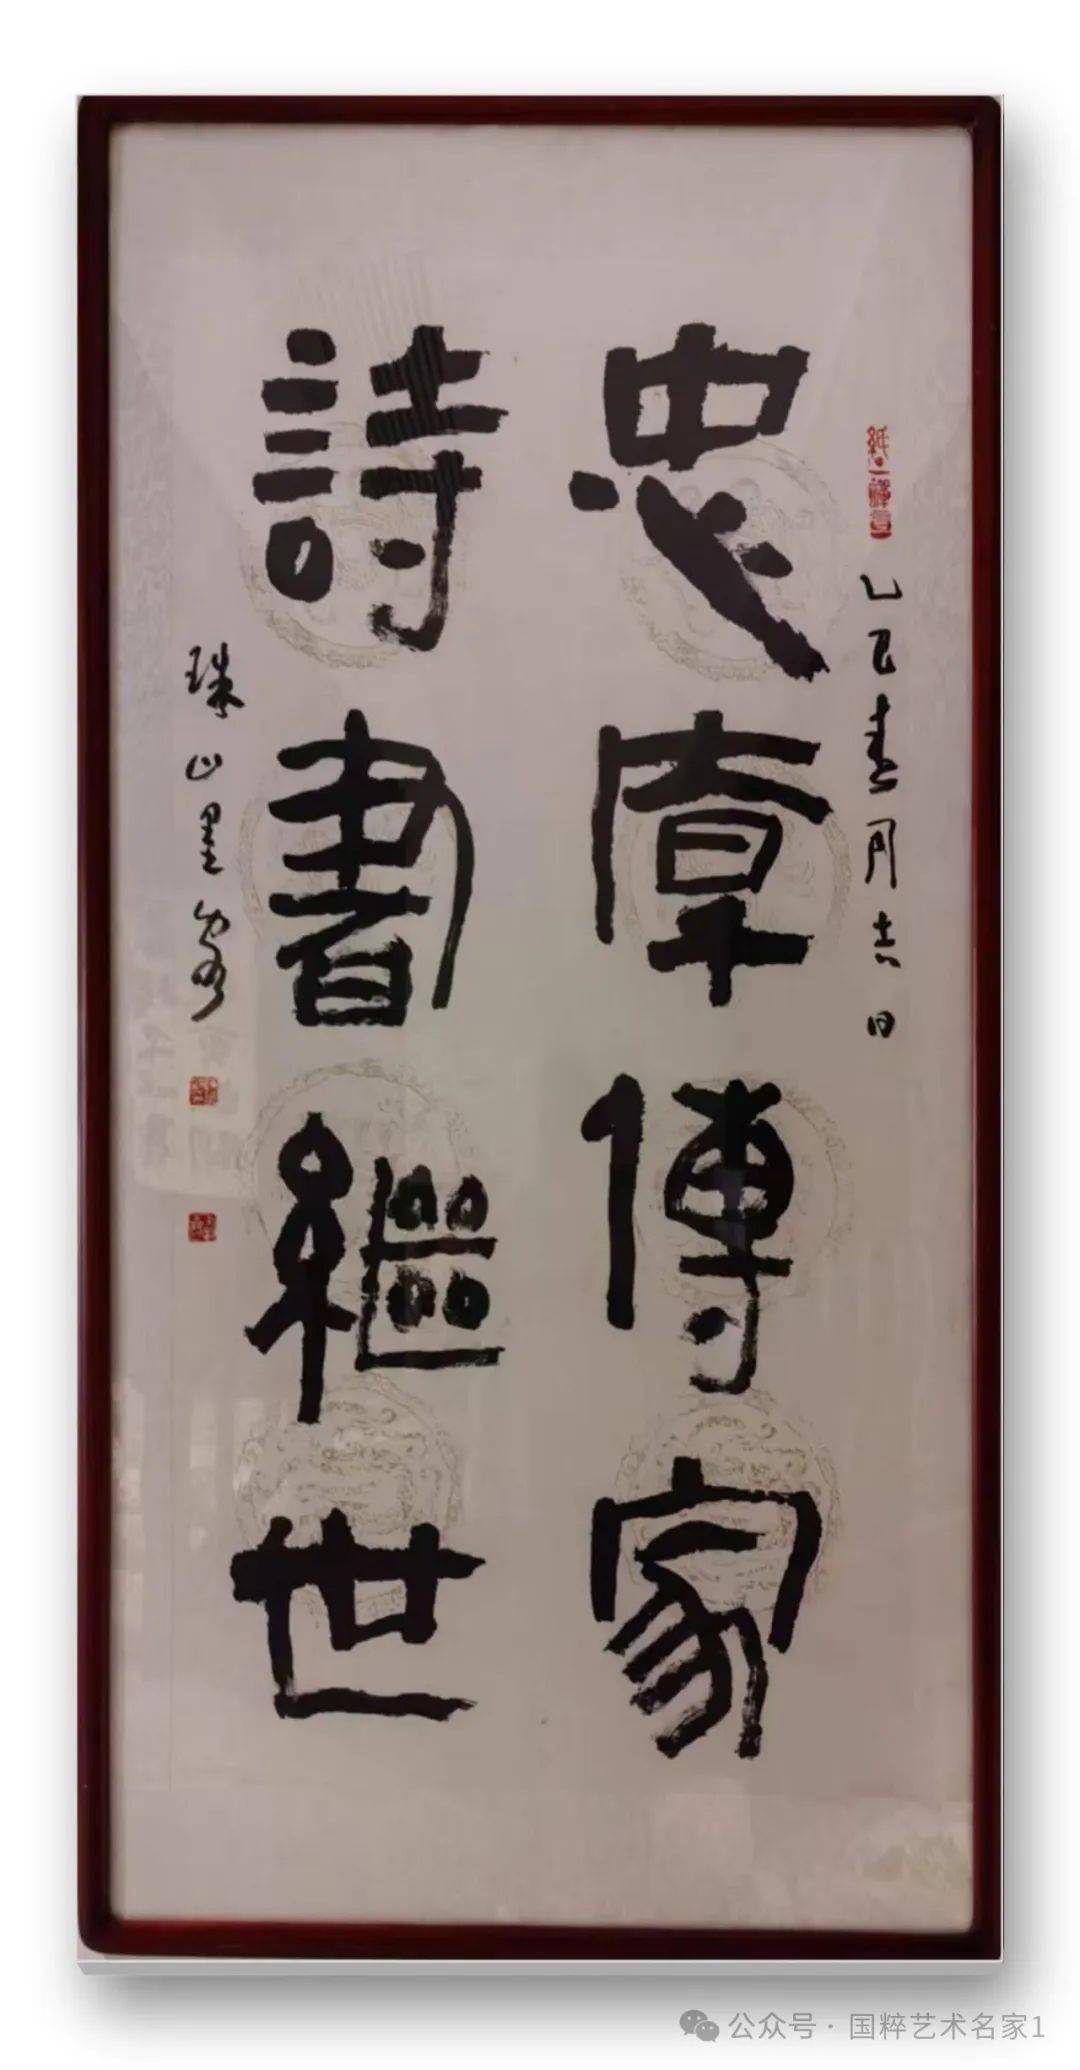 乙巳春月吉日
忠厚傳家
詩書繼世
珠山墨客
公众号 · 国粹艺术名家1